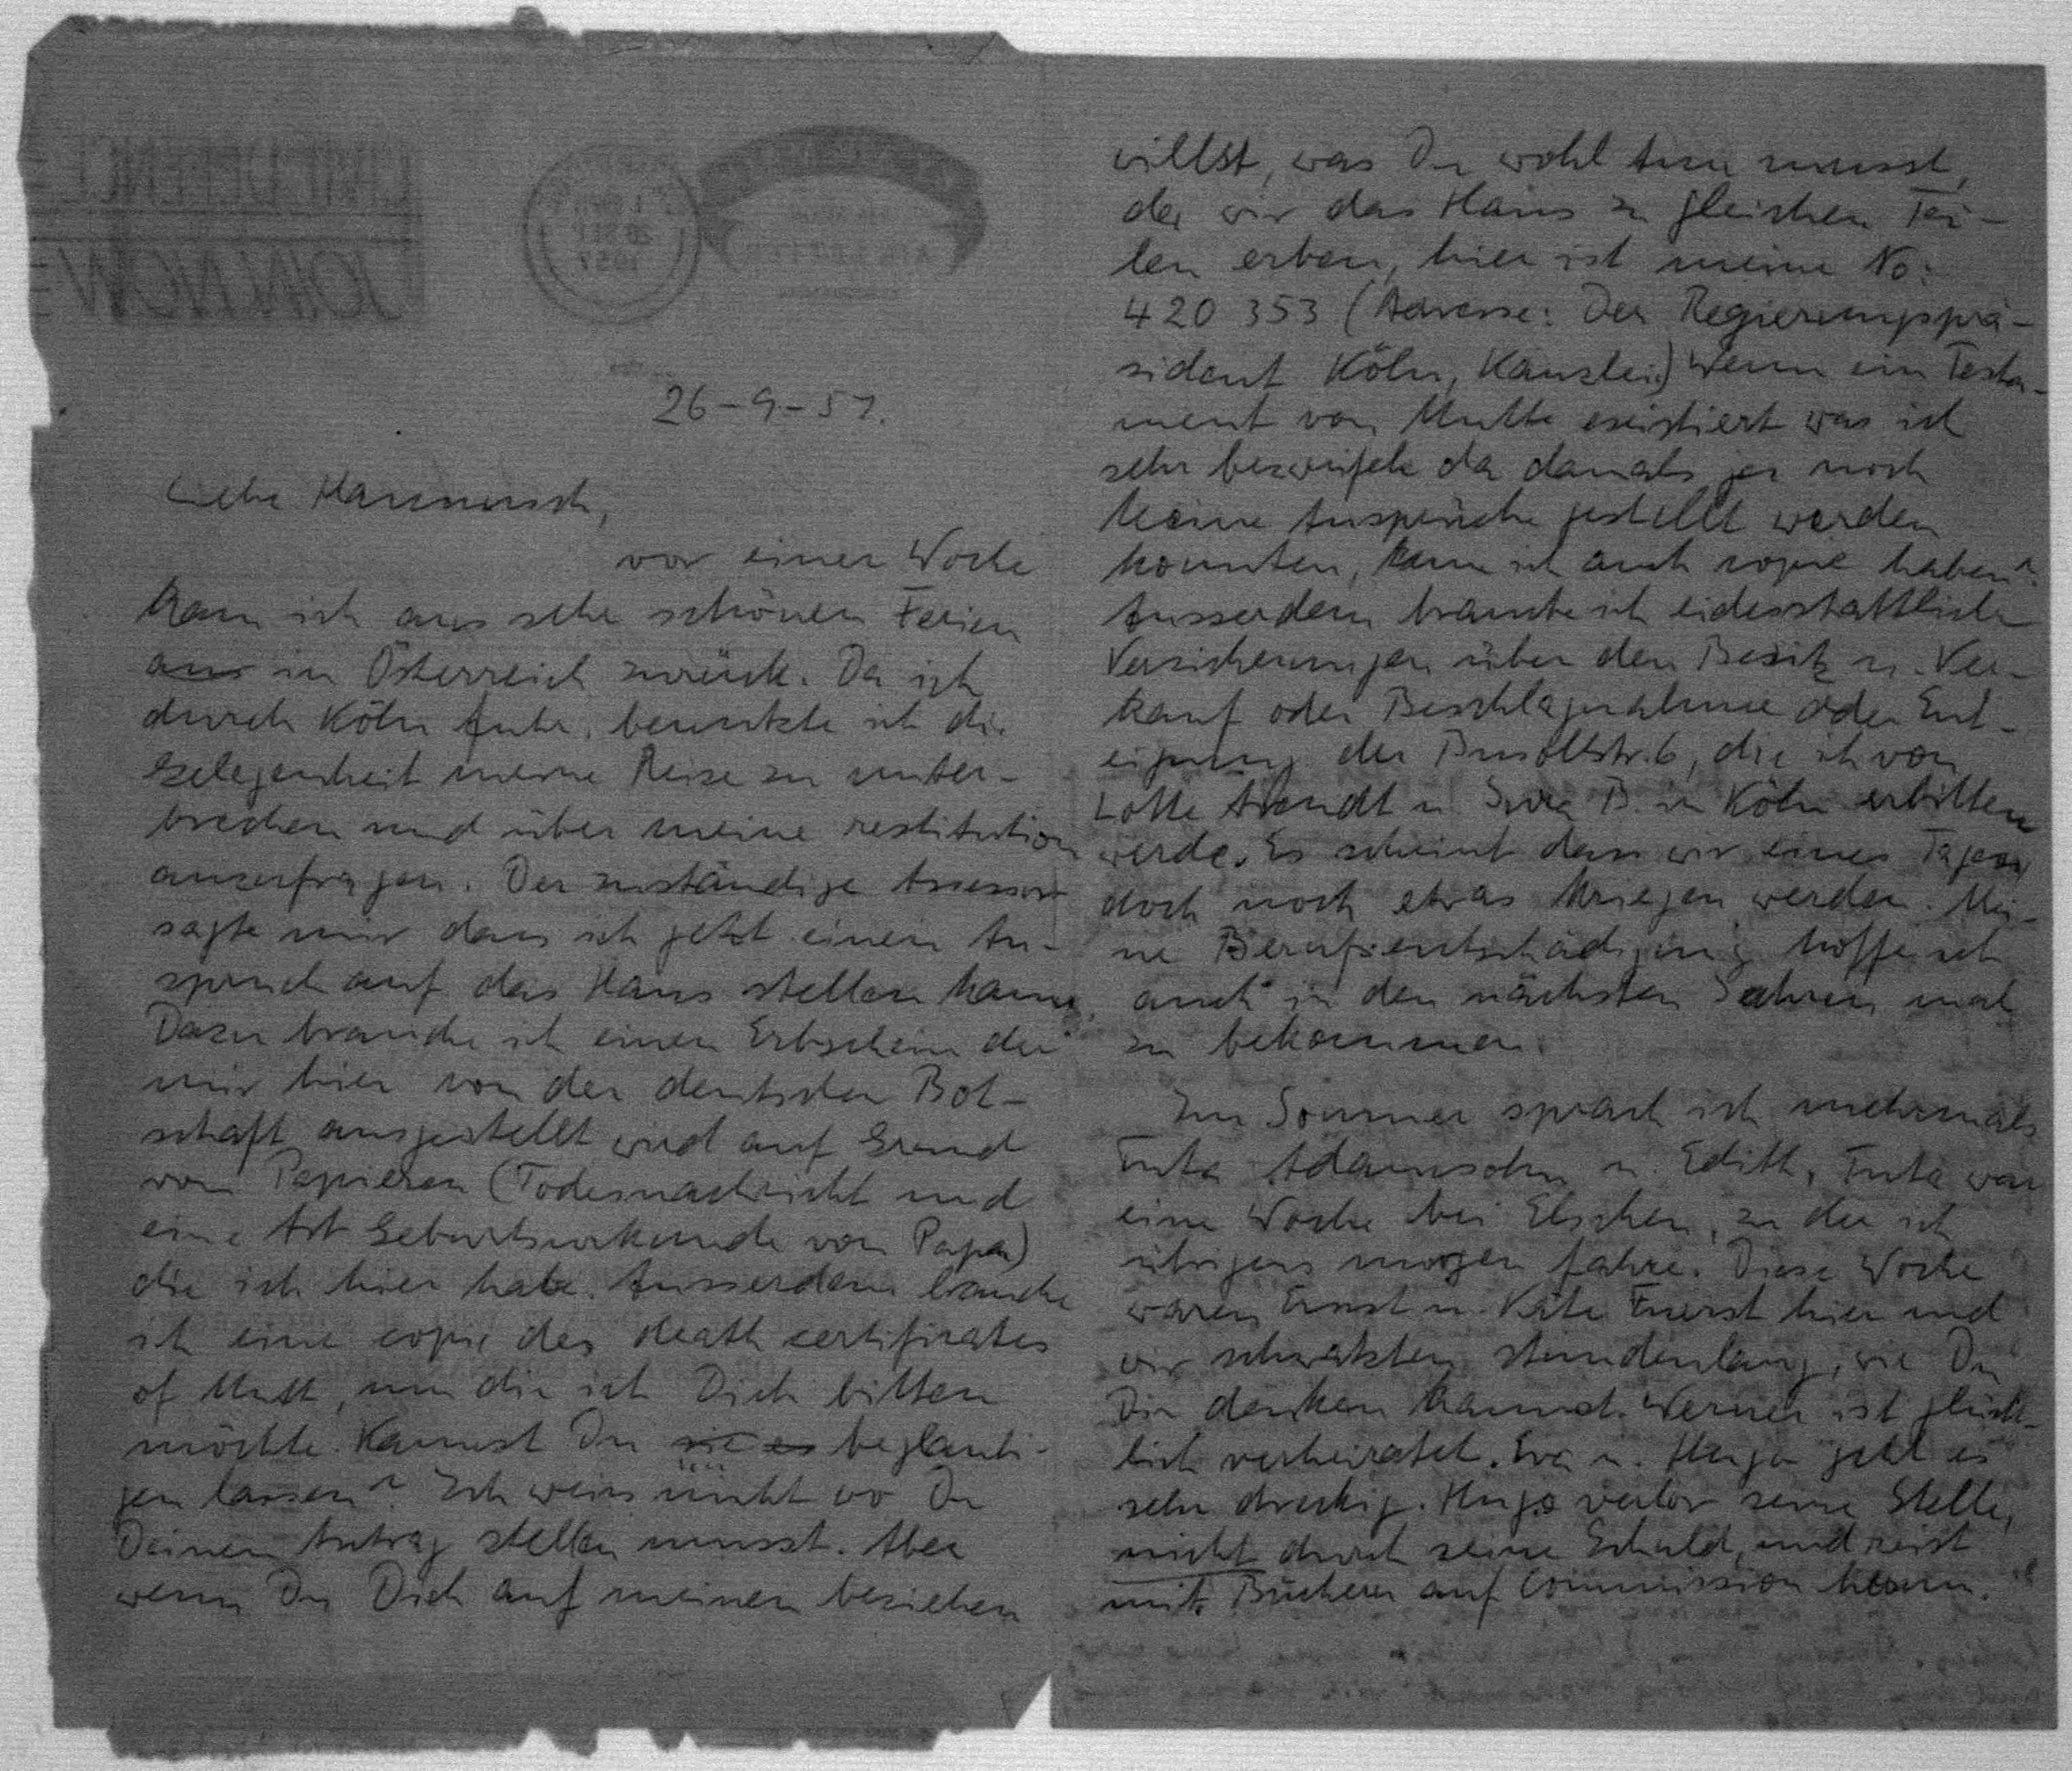 CIVIL DEFENCE
JOIN NOW
26-9-57.
Liebe
vor einer Woche
kam ich aus sehr schönen Ferien
aus in Österreich zurück. Da ich
durch Köln fuhr, benutzte ich die
Gelegenheit meine Reise zu unter-
brechen und über meine restitution
anzufragen. Der zuständige Assessor
sagte mir dass ich jetzt einen An-
spruch auf das Haus stellen kann.
Dazu brauche ich einen Erbschein der
mir hier von der deutschen Bot-
schaft ausgestellt wird auf Grund
von Papieren (Todesnachricht und
eine Art Geburtsurkunde von Papa)
die ich hier habe. Ausserdem brauche
ich eine copie des death certificates
of Mutt, um die ich Dich bitten
möchte. Kannst Du sie es beglaubi-
gen lassen? Ich weiss nicht wo Du
Deinen Antrag stellen musst. Aber
wenn Du Dich auf meinen beziehen
willst, was Du wohl tun musst,
da wir das Haus zu gleichen Tei-
len erben, hier ist meine No:
420 353 (Adresse: Der Regierungsprä-
sident Köln, Kanzlei) Wenn ein Testa-
ment von Mutte existiert was ich
sehr bezweifele da damals ja noch
keine Ansprüche gestellt werden
konnten, kann ich auch copie haben?
Ausserdem brauche ich eidesstattliche
Versicherungen über den Besitz u. Ver-
kauf oder Beschlagnahme oder Ent-
eignung der Busoltstr. 6, die ich von
Lotte Arendt u. B. in Köln erbitten
werde. Es scheint dass wir eines Tages
doch noch etwas kriegen werden. Mei-
ne Berufsentschädigung hoffe ich
auch in den nächsten Jahren mal
zu bekommen.
Im Sommer sprach ich mehrmals
Tuta Adamsohn u. Edith, Tuta war
eine Woche bei Elschen, zu der ich
übrigens morgen fahre. Diese Woche
waren Ernst u. Käte Fuerst hier und
wir schwatzten stundenlang, wie Du
Dir denken kannst. Werner ist glück-
lich verheiratet. Eva u. Hugo geht es
sehr dreckig. Hugo verlor seine Stelle,
nicht durch seine Schuld, und reist
mit Büchern auf Commission herum.